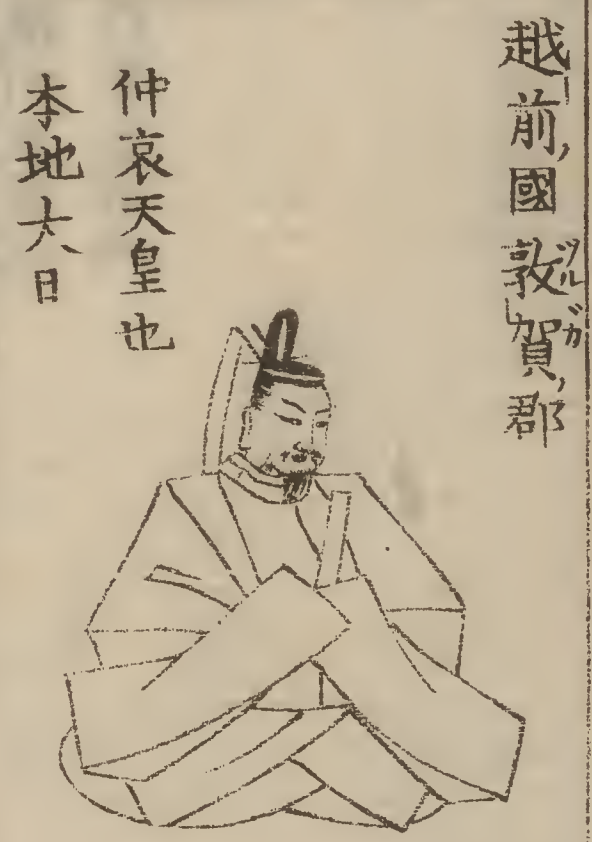 越前國敦賀郡
ツルガ
仲哀天皇也
本地大日